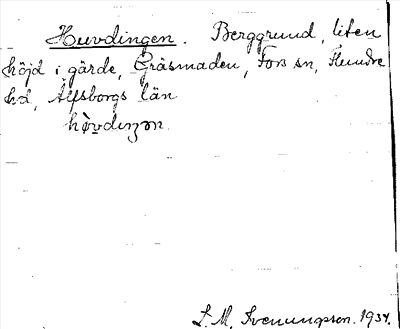 Huvdingen. Berggrund, liten
höjd i gärde, Gräsmaden, Fors sn, Flundre
hd, Älfsborgs län
L. M. Svenungsson. 1934.